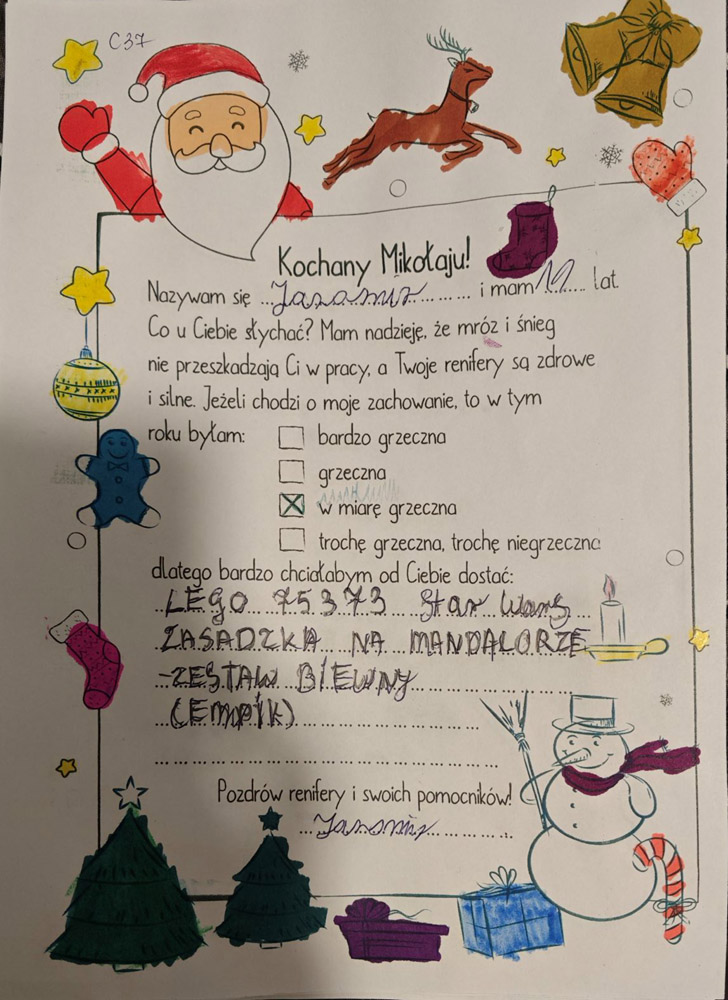 C37
Kochany Mikołaju!
Nazywam się ... Jaromir ... i mam ... lat.
Co u Ciebie słychać? Mam nadzieję, że mróz i śnieg
nie przeszkadzają Ci w pracy, a Twoje renifery są zdrowe
i silne. Jeżeli chodzi o moje zachowanie, to w tym
roku byłam:
bardzo grzeczna
grzeczna
w miarę grzeczna
trochę grzeczna, trochę niegrzeczna
dlatego bardzo chciałabym od Ciebie dostać:
LEGO 75373 Star Wars
ZASADZKA NA MANDALORZE
-ZESTAW BIEWNY
(EMPIK)
Pozdrów renifery i swoich pomocników!
Jaromir